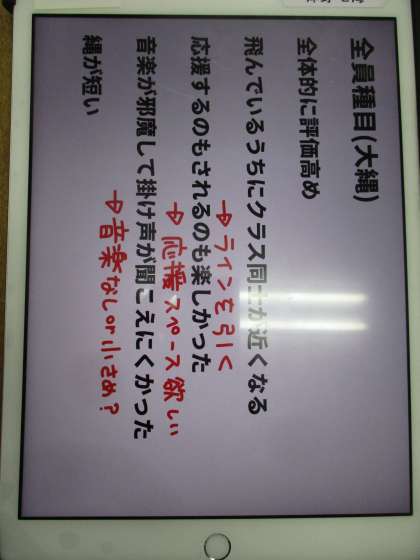 全員種目(大縄)
全体的に評価高め
飛んでいるうちにクラス同士が近くなる
→ ラインを引く
応援するのもされるのも楽しかった
→ 応援スペース欲しい
音楽が邪魔して掛け声が聞こえにくかった
→ 音楽なしor小さめ?
縄が短い